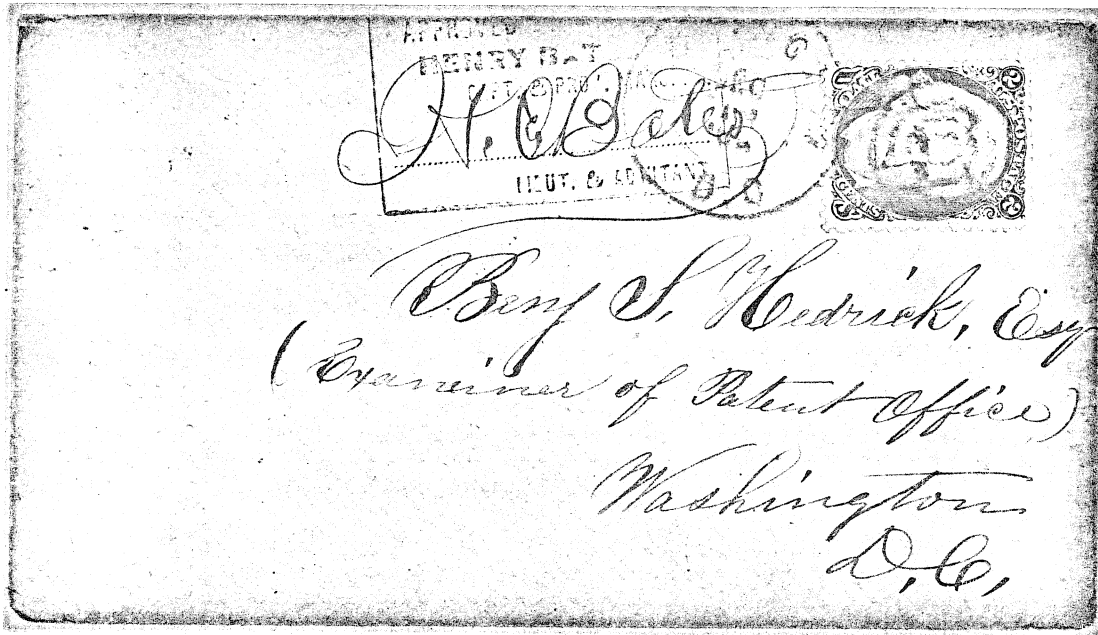 APPROVED
HENRY
LIEUT. & ADJUTANT
Benj S. Hedrick, Esq
(Examiner of Patent Office)
Washington
D.C.